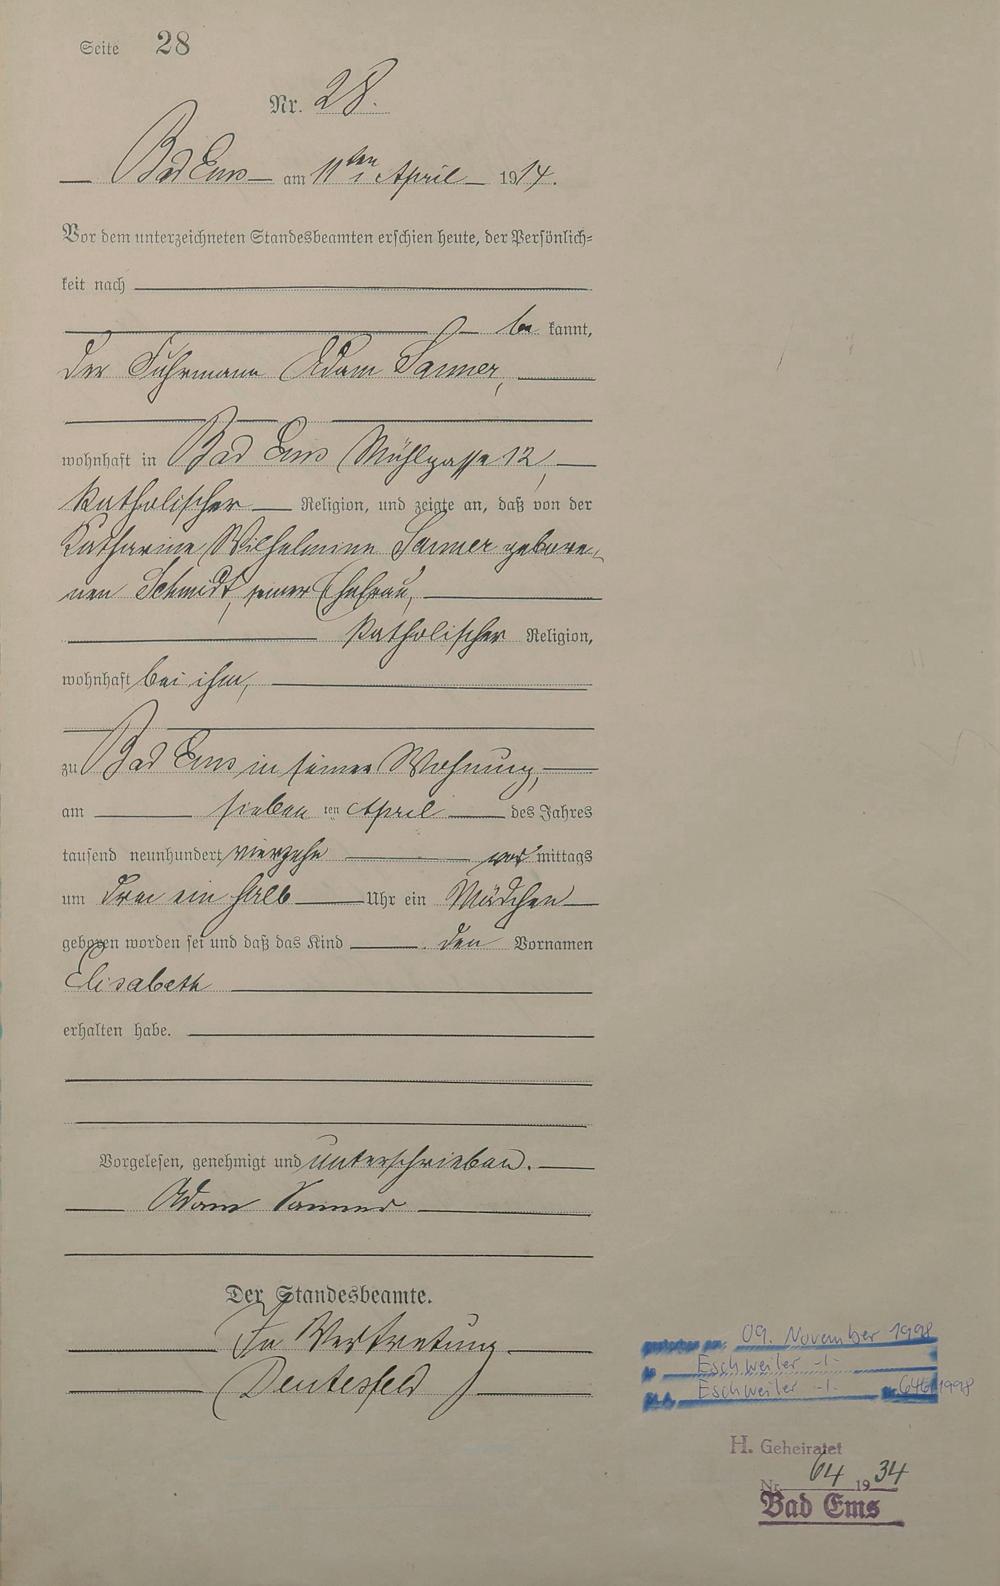 Seite 28
Nr. 28.
Bad Ems am 11ten April 1914.
Vor dem unterzeichneten Standesbeamten erschien heute, der Persönlich=
keit nach
be kannt,
der Fuhrmann Adam Sanner,
wohnhaft in Bad Ems Mühlgasse 12,
katholischer Religion, und zeigte an, daß von der
Katharine Wilhelmine Sanner gebore-
nen Schmidt, seiner Ehefrau,
katholischer Religion,
wohnhaft bei ihm,
zu Bad Ems in seiner Wohnung,
am sieben ten April des Jahres
tausend neunhundert vierzehn vor mittags
um drei ein halb Uhr ein Mädchen
geboren worden sei und daß das Kind den Vornamen
Elisabeth
erhalten habe.
Vorgelesen, genehmigt und unterschrieben.
Adam Sanner
Der Standesbeamte.
In Vertretung
Deutesfeld
09. November 1998
Eschweiler -/-
Eschweiler -/- 646/1998
H. Geheiratet
Nr. 64 1934
Bad Ems